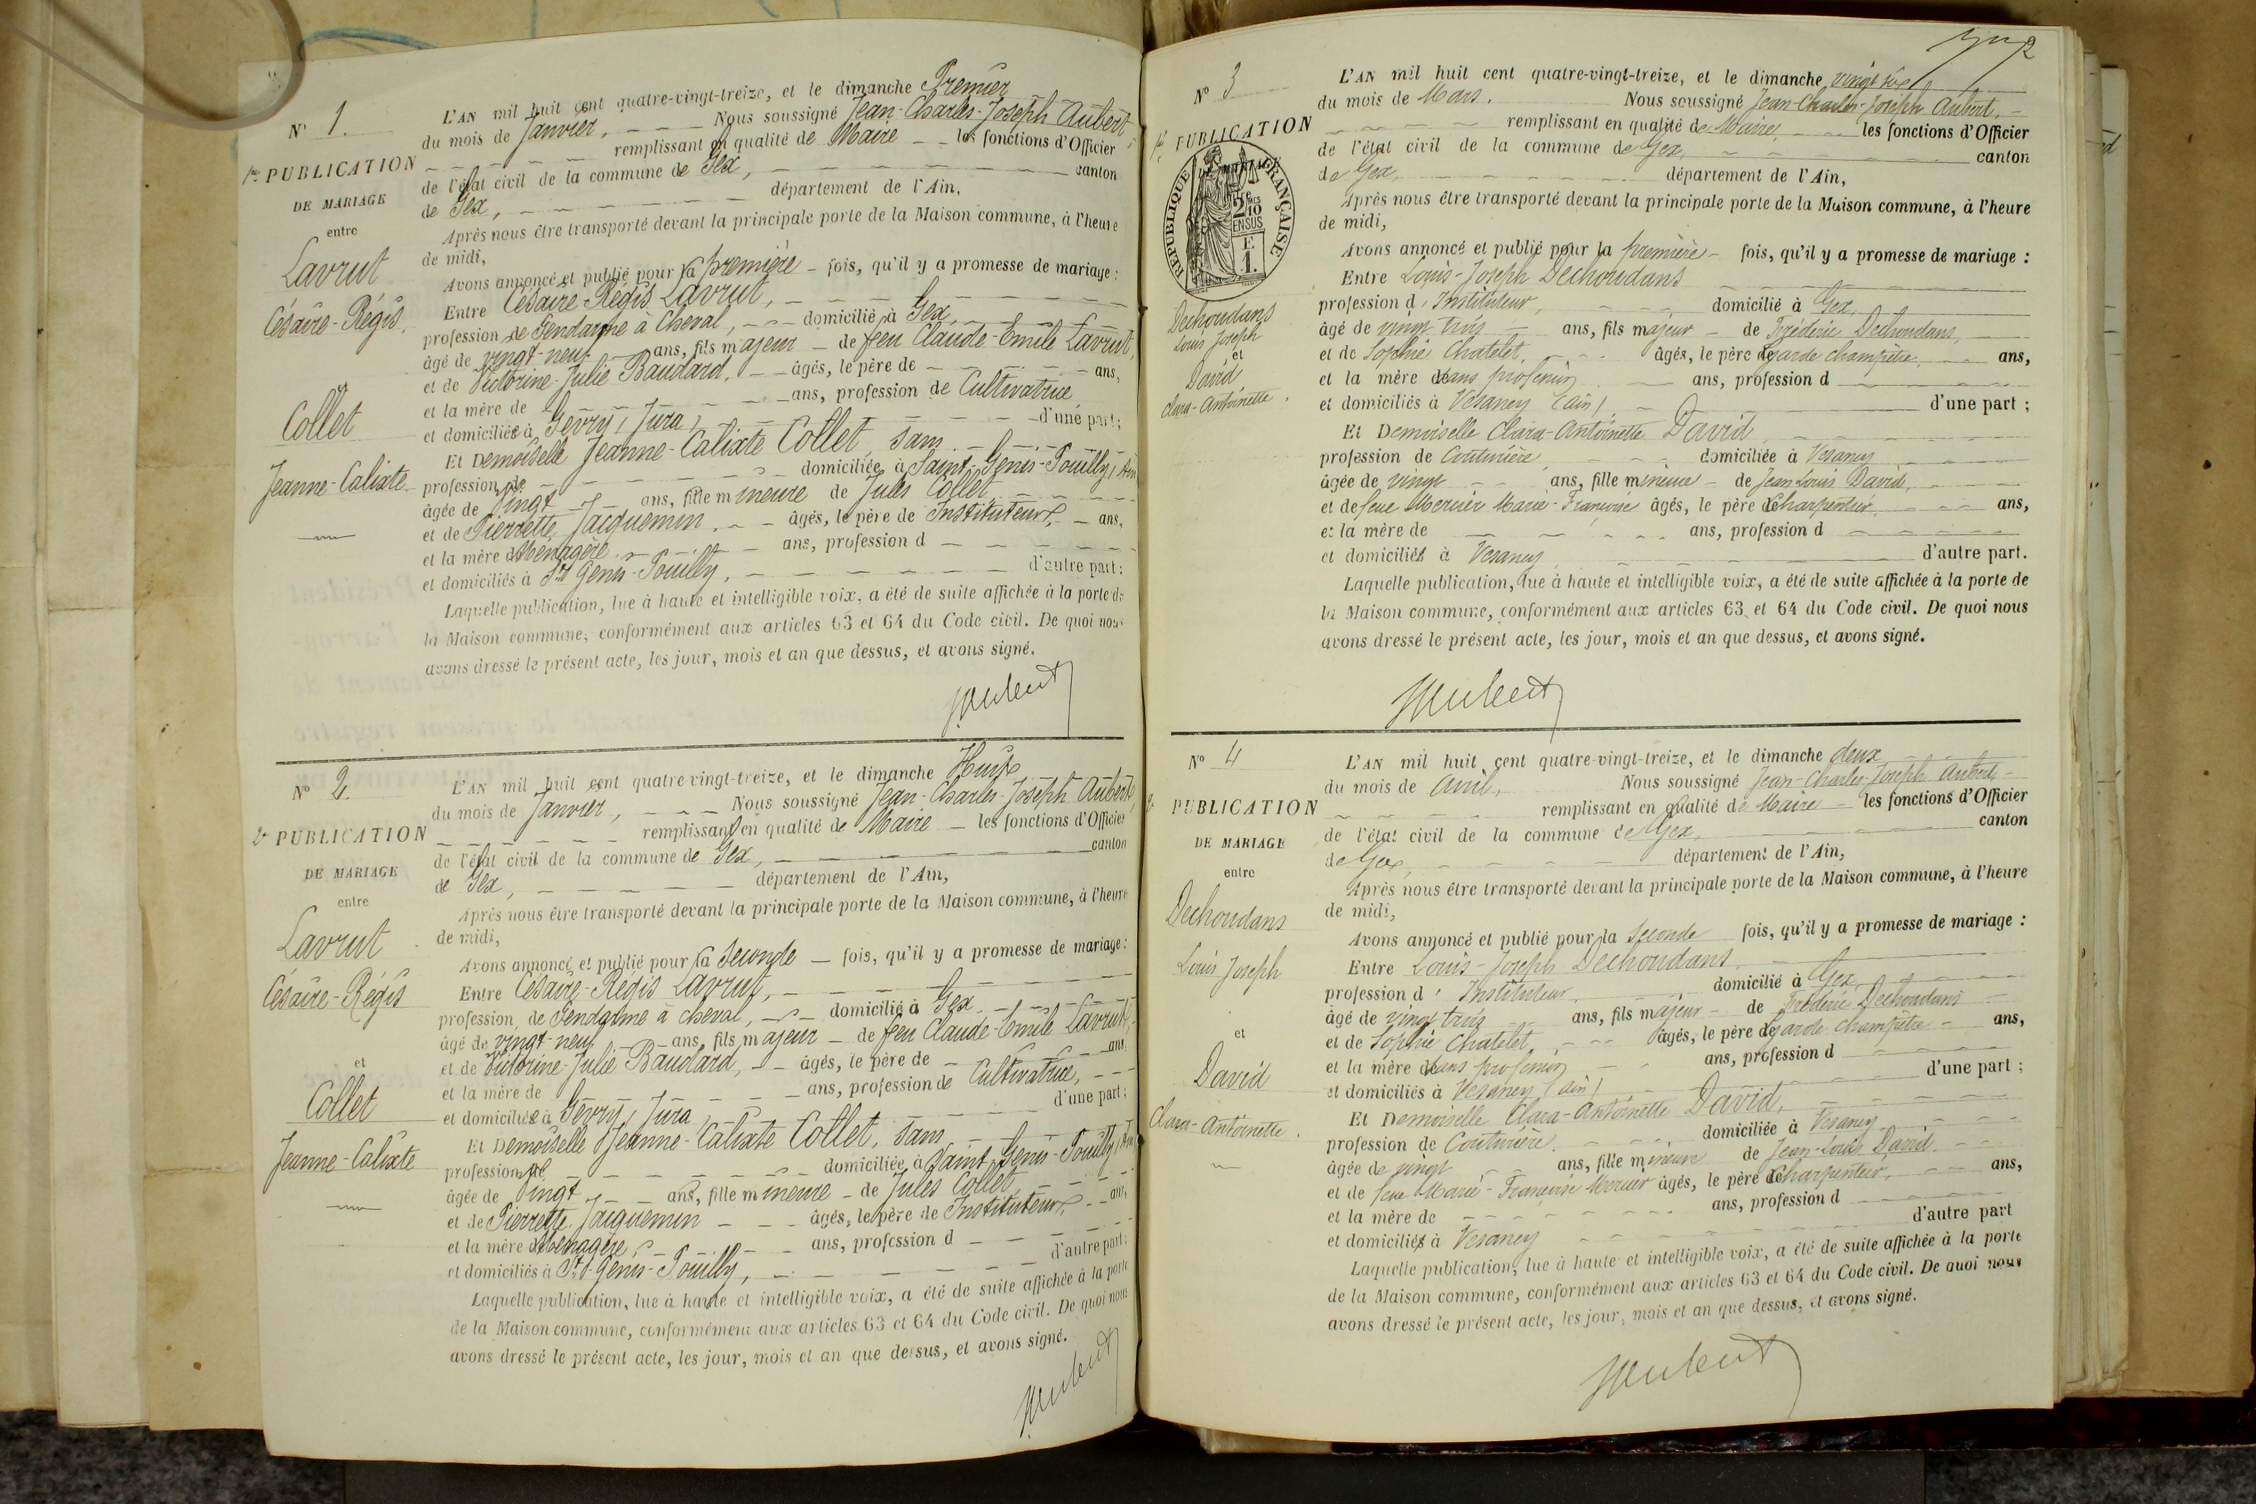 N° 1.
1re PUBLICATION
DE MARIAGE
entre
Lavrut
Césaire-Régis.
Collet
Jeanne-Calixte
L'AN mil huit cent quatre-vingt-treize, et le dimanche Premier
du mois de Janvier, Nous soussigné Jean-Charles-Joseph Aubert,
remplissant en qualité de Maire les fonctions d'Officier
de l'état civil de la commune de Gex, canton
de Gex, département de l'Ain,
Après nous être transporté devant la principale porte de la Maison commune, à l'heure
de midi,
Avons annoncé et publié pour la première fois, qu'il y a promesse de mariage :
Entre Césaire-Régis Lavrut,
profession de Gendarme à Cheval, domicilié à Gex,
âgé de vingt-neuf ans, fils majeur de feu Claude-Emile Lavrut,
et de Victorine-Julie Baudard, âgés, le père de ans,
et la mère de ans, profession de Cultivatrice
et domiciliée à Gevry, Jura, d'une part;
Et Demoiselle Jeanne-Calixte Collet, sans
profession de domiciliée à Saint-Genis-Pouilly, Ain
âgée de Vingt ans, fille mineure de Jules Collet,
et de Pierrette Jacquemin, âgés, le père de Instituteur, ans,
et la mère de Ménagère. ans, profession d
et domiciliés à St Genis-Pouilly, d'autre part;
Laquelle publication, lue à haute et intelligible voix, a été de suite affichée à la porte de
la Maison commune, conformément aux articles 63 et 64 du Code civil. De quoi nous
avons dressé le présent acte, les jour, mois et an que dessus, et avons signé.
JAubert
N° 2.
2e PUBLICATION
DE MARIAGE
entre
Lavrut
Césaire-Régis
et
Collet
Jeanne-Calixte
L'AN mil huit cent quatre-vingt-treize, et le dimanche Huit
du mois de Janvier, Nous soussigné Jean-Charles-Joseph Aubert
remplissant en qualité de Maire les fonctions d'Officier
de l'état civil de la commune de Gex, canton
de Gex, département de l'Ain,
Après nous être transporté devant la principale porte de la Maison commune, à l'heure
de midi,
Avons annoncé et publié pour la Seconde fois, qu'il y a promesse de mariage :
Entre Césaire-Régis Lavrut,
profession de Gendarme à cheval, domicilié à Gex
âgé de vingt-neuf ans, fils majeur de feu Claude-Emile Lavrut,
et de Victorine-Julie Baudard, âgés, le père de ans,
et la mère de ans, profession de Cultivatrice,
et domiciliée à Gevry, Jura d'une part;
Et Demoiselle Jeanne-Calixte Collet, sans
profession de domiciliée à Saint-Genis-Pouilly, Ain
âgée de Vingt ans, fille mineure de Jules Collet
et de Pierrette Jacquemin âgés, le père de Instituteur, ans,
et la mère de Ménagère, ans, profession d
et domiciliés à St Genis-Pouilly, d'autre part;
Laquelle publication, lue à haute et intelligible voix, a été de suite affichée à la porte
de la Maison commune, conformément aux articles 63 et 64 du Code civil. De quoi nous
avons dressé le présent acte, les jour, mois et an que dessus, et avons signé.
JAubert
N° 3
1re PUBLICATION
RÉPUBLIQUE FRANÇAISE
2/10
EN SUS
Dechoudans
Louis Joseph
et
David
Clara-Antoinette.
L'AN mil huit cent quatre-vingt-treize, et le dimanche vingt six
du mois de Mars. Nous soussigné Jean-Charles-Joseph Aubert,
remplissant en qualité de Maire les fonctions d'Officier
de l'état civil de la commune de Gex, canton
de Gex, département de l'Ain,
Après nous être transporté devant la principale porte de la Maison commune, à l'heure
de midi,
Avons annoncé et publié pour la première fois, qu'il y a promesse de mariage :
Entre Louis-Joseph Dechoudans
profession d'Instituteur, domicilié à Gex,
âgé de vingt trois ans, fils majeur de Frédéric Dechoudans,
et de Sophie Chatelet, âgés, le père de garde champêtre, ans,
et la mère de sans profession ans, profession d
et domiciliés à Vesancy (Ain) d'une part ;
Et Demoiselle Clara-Antoinette David
profession de Couturière, domiciliée à Vesancy
âgée de vingt ans, fille mineure de Jean Louis David,
et de feue Mercier Marie-Françoise âgés, le père de Charpentier, ans,
et la mère de ans, profession d
et domicilié à Vesancy d'autre part.
Laquelle publication, lue à haute et intelligible voix, a été de suite affichée à la porte de
la Maison commune, conformément aux articles 63 et 64 du Code civil. De quoi nous
avons dressé le présent acte, les jour, mois et an que dessus, et avons signé.
JAubert
N° 4
2e PUBLICATION
DE MARIAGE
entre
Dechoudans
Louis Joseph
et
David
Clara-Antoinette.
L'AN mil huit cent quatre-vingt-treize, et le dimanche deux
du mois de Avril, Nous soussigné Jean-Charles-Joseph Aubert
remplissant en qualité de Maire les fonctions d'Officier
de l'état civil de la commune de Gex, canton
de Gex, département de l'Ain,
Après nous être transporté devant la principale porte de la Maison commune, à l'heure
de midi,
Avons annoncé et publié pour la Seconde fois, qu'il y a promesse de mariage :
Entre Louis-Joseph Dechoudans
profession d'Instituteur, domicilié à Gex,
âgé de vingt trois ans, fils majeur de Frédéric Dechoudans
et de Sophie Chatelet âgés, le père de garde champêtre ans,
et la mère de sans profession ans, profession d
et domiciliés à Vesancy (Ain) d'une part ;
Et Demoiselle Clara-Antoinette David,
profession de Couturière. domiciliée à Vesancy
âgée de vingt ans, fille mineure de Jean-Louis David.
et de feue Marie-Françoise Mercier âgés, le père de Charpentier, ans,
et la mère de ans, profession d
et domicilié à Vesancy d'autre part
Laquelle publication, lue à haute et intelligible voix, a été de suite affichée à la porte
de la Maison commune, conformément aux articles 63 et 64 du Code civil. De quoi nous
avons dressé le présent acte, les jour, mois et an que dessus, et avons signé.
JAubert